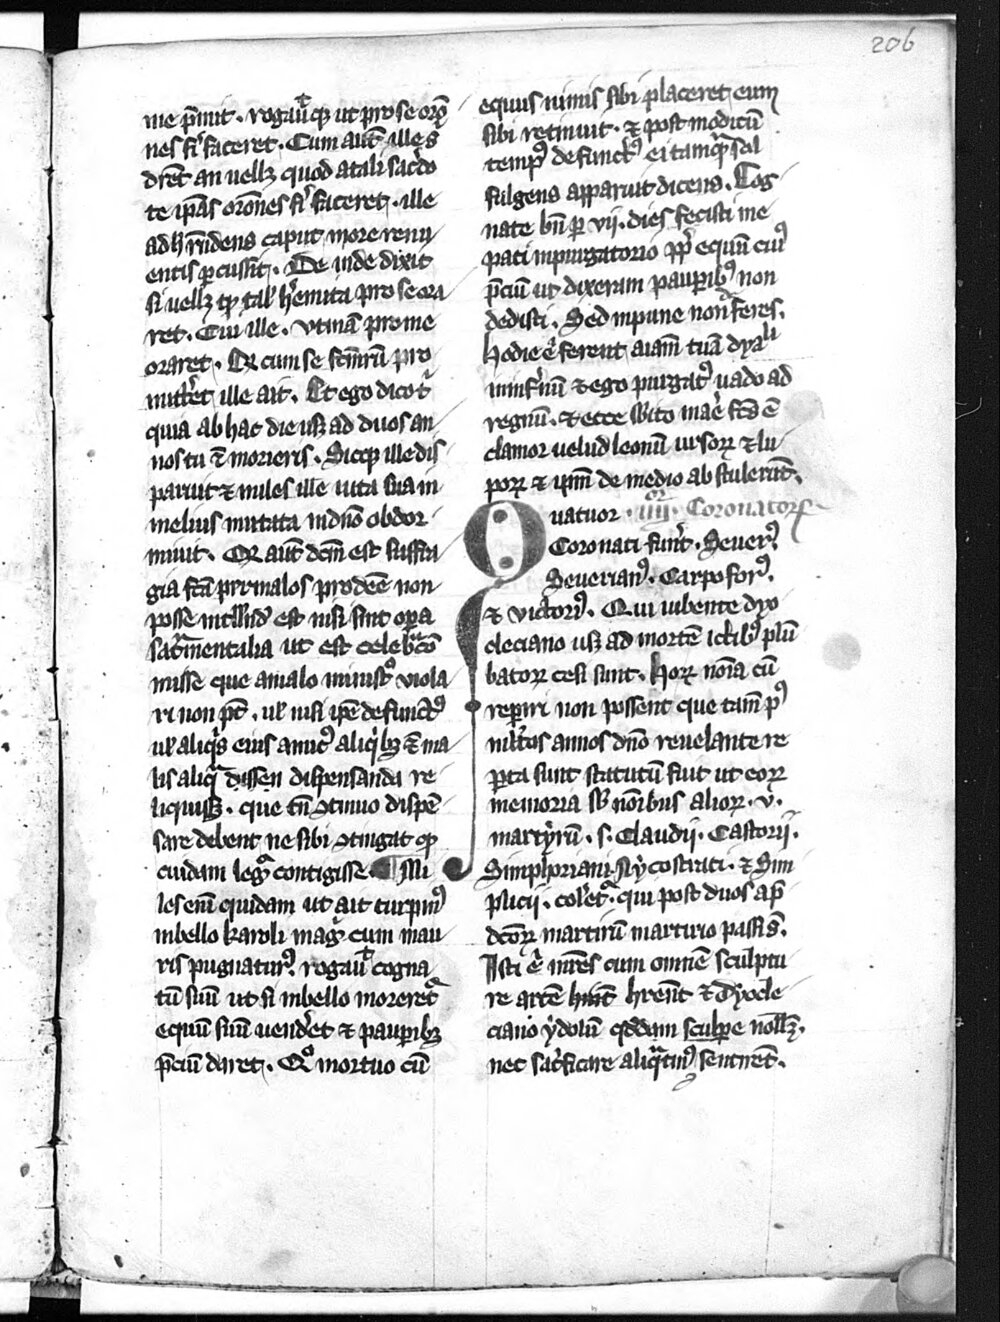 206
me p̄mit. rogauitq; ut pro se orō
nes fi faceret. Cum aut̄ ille q̄
dr̄et an uellꝫ quod a tali sacˀdo
te ip̄as orōnes fi faceret. ille
ad h̄ r̄ndens caput more renu
entis percussit. De inde dixit
si uellꝫ qp̄ tal' h̓emita pro se ora
ret. Cui ille. vtinā pro me
oraret. Qd cum se fcm̄rū pro
mitt̓et ille ait. Et ego dico t̓
quia ab hac die usqꝫ ad duos an
nos tu n̄ morieris. Sicqꝫ ille dis
paruit ⁊ miles ille uita sua in
melius mutata in dn̄o obdor
miuit. Qd aut̄ dcm̄ est suffra
gia fca̅ per malos prodēē non
posse intll̓d' est nisi sint oꝑa
sac̓mentalia ut est celebrāco̅
misse que a malo minist° viola
ri non pt̄. ul' nisi ip̄e defunctꝰ
ul' aliqͥs eius amicꝰ aliqͥbꝫ & ma
lis aliqͣ dissen dispensanda re
liquiss̄ꝫ. que tn̄ ꝯtinuo dispē
sare debent ne sibi ꝯtingat qp̄
cuidam legͥ contigisse. ¶ Mi
les eni̅ quidam ut ait turpinꝰ
in bello karoli magͥ cum mau
ris pugnaturꝰ. rogauit cogna
tū suū ut si in bello moreret͛
equū suū uend̓et ⁊ pauꝑibꝫ
p̄ciū daret. Q° mortuo cū
equus nimis sibi placeret eum
sibi retinuit. ⁊ post modicū
tempꝰ defunctꝰ ei tamqͣ sol
fulgens apparuit dicens. Cog
nate bn̄ ꝑ vij. dies fecisti me
pati in purgatorio pp̄ equū cuiꝰ
p̄ciū ut dixeram pauꝑibꝰ non
dedisti. Sed inpune non feres.
hodie ei̅ ferent aīam tuā dyali
in inf̓nū ⁊ ego purgatꝰ uado ad
regnū. ⁊ ecce sbito in aere fcs ē
clamor uelud leonū ursoꝝ ⁊ lu
poꝝ ⁊ ipm̄ de medio abstulerūt.
Quatuor. iiij. Coronatorꝝ
Coronati fuer̄t. Seuerꝰ.
Seuerianꝰ. Carpoforꝰ.
⁊ victorinꝰ. Qui iubente dyo
cleciano usqꝫ ad mortē ictibꝰ plū
batoꝝ cesi sunt. hoꝝ noīa cū
reꝑiri non possent que tam̄ pꝰ
mltos annos dn̄o reuelante re
ꝑta sunt statutū fuit ut eoꝝ
memoria sb̄ noībus alioꝝ. v.
martyrū. s. Claudij. Castorij.
Simphoriani. Nycostrati. ⁊ Sim
plicij. coleret͛. qui post duos ab
dcoꝝ martirū martirio passi s̄.
Isti ei̅ mr̄es cum omnē sculptu
re artē hu̅it hre̅nt ⁊ dyocle
ciano ydolū qddam sculpe nollꝫ.
nec sac̓ficare aliqͣtinꝰ sentirēt.